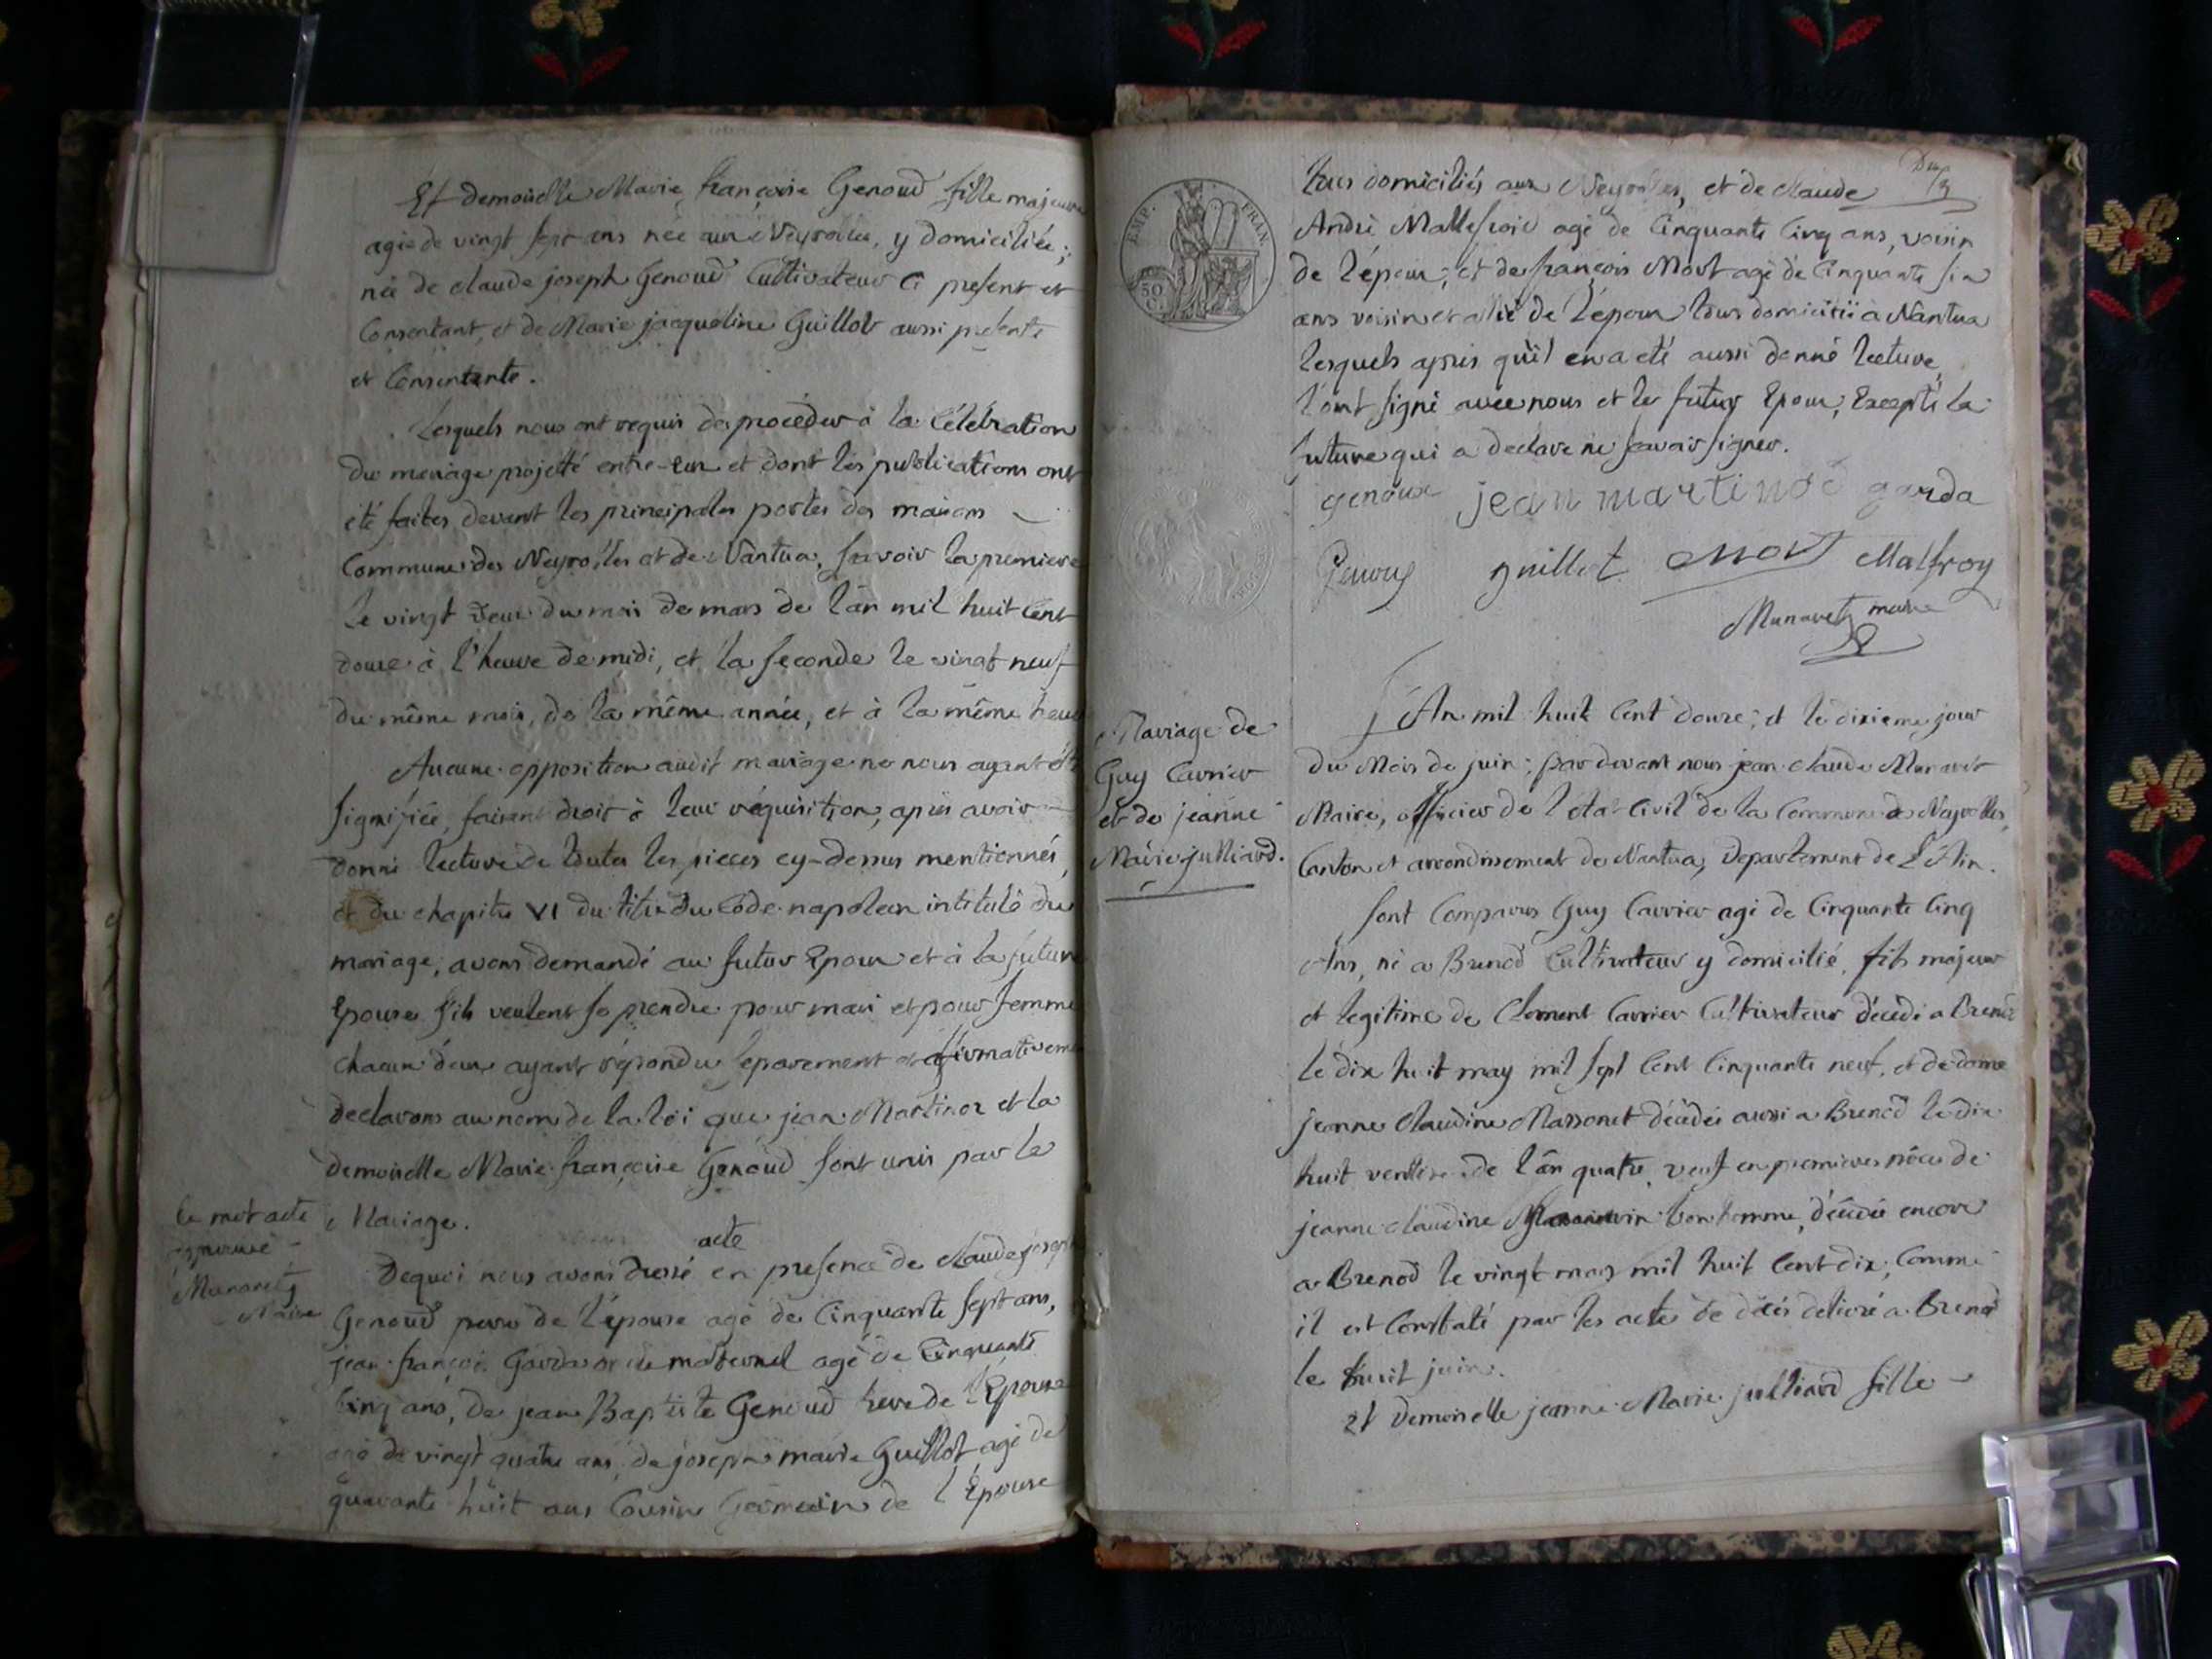 Et demoiselle Marie françoise Genoud fille majeure
agée de vingt sept ans née aux Neyrolles, y domiciliée;
née de claude joseph Genoud Cultivateur ci present et
Consentant, et de Marie jacqueline Guillot aussi presente
et Consentente.
Lesquels nous ont requis de procéder à la Célébration
du mariage projetté entre-eux et dont les publications ont
été faites devant les principales portes des maisons
Communes des Neyrolles et de Nantua, savoir la premiere
Le vingt deux du mois de mars de l'an mil huit Cent
douze à l'heure de midi, et la seconde le vingt neuf
du même mois, de la même année, et à la même heure
Aucune opposition audit mariage ne nous ayant été
signifiée, faisant droit à leur réquisition, après avoir
donné lecture de toutes les pieces cy-dessus mentionnés,
et du chapitre VI du titre du Code napoleon intitulé du
mariage, avons demandé au futur Epoux et à la future
Epouse s'ils veulent se prendre pour mari et pour femme
chacun d'eux ayant répondu separement et affirmativement
declarons au nom de la loi que jean Martinoz et la
demoiselle Marie françoise Genoud sont unis par le
Mariage.
le mot acte
approuvé
Munaretz
Maire
acte
Dequoi nous avons dressé en presence de claude joseph
Genoud pere de l'épouse agé de Cinquante sept ans,
jean françois Garda oncle maternel agé de Cinquante
Cinq ans, de jean Baptiste Genoud frere de l'Epouse
agé de vingt quatre ans, de joseph marie Guillot agé de
quarante huit ans Cousin Germain de l'Epouse
tous domiciliés aux Neyrolles, et de claude
André Mallefroid agé de Cinquante Cinq ans, voisin
de l'époux; et de françois Mort agé de Cinquante six
ans voisin et allié de l'époux tous domicilié à Nantua
lesquels après qu'il en a eté aussi donné lecture,
l'ont signé avec nous et le futur Epoux; Excepté la
future qui a declare ne scavoir signer.
genoux jean martinoz garda
Genoux guillot Mort Malfroy
Munaretz maire
Mariage de
Guy Carrier
et de jeanne
Marie julliard.
L'An mil huit Cent douze; et le dixieme jour
du Mois de juin; par devant nous jean claude Munaret
Maire, officier de l'etat Civil de la Commune des Neyrolles,
Canton et arrondissement de Nantua, Departement de L'Ain.
sont Comparus Guy Carrier agé de Cinquante Cinq
Ans, né a Brenod Cultivateur y domicilié, fils majeur
et legitime de Clement Carrier Cultivateur décédé a Brenod
le dix huit may mil sept Cent Cinquante neuf, et de dame
jeanne Claudine Massonet décédée aussi a Brenod le dix
huit ventose de l'an quatre, veuf en premieres nôces de
jeanne claudine bonhomme, décédée encore
a Brenod le vingt mars mil huit Cent dix, Comme
il est Constaté par les actes de décés delivré a Brenod
le huit juin.
Et demoiselle jeanne Marie julliard fille